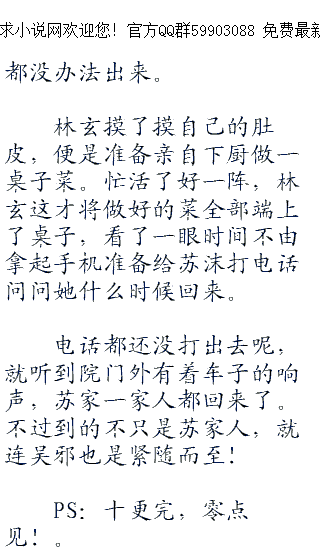 求小说网欢迎您！官方QQ群59903088 免费最新
都没办法出来。
林玄摸了摸自己的肚
皮，便是准备亲自下厨做一
桌子菜。忙活了好一阵，林
玄这才将做好的菜全部端上
了桌子，看了一眼时间不由
拿起手机准备给苏沫打电话
问问她什么时候回来。
电话都还没打出去呢，
就听到院门外有着车子的响
声，苏家一家人都回来了。
不过到的不只是苏家人，就
连吴邪也是紧随而至！
PS：十更完，零点
见！。